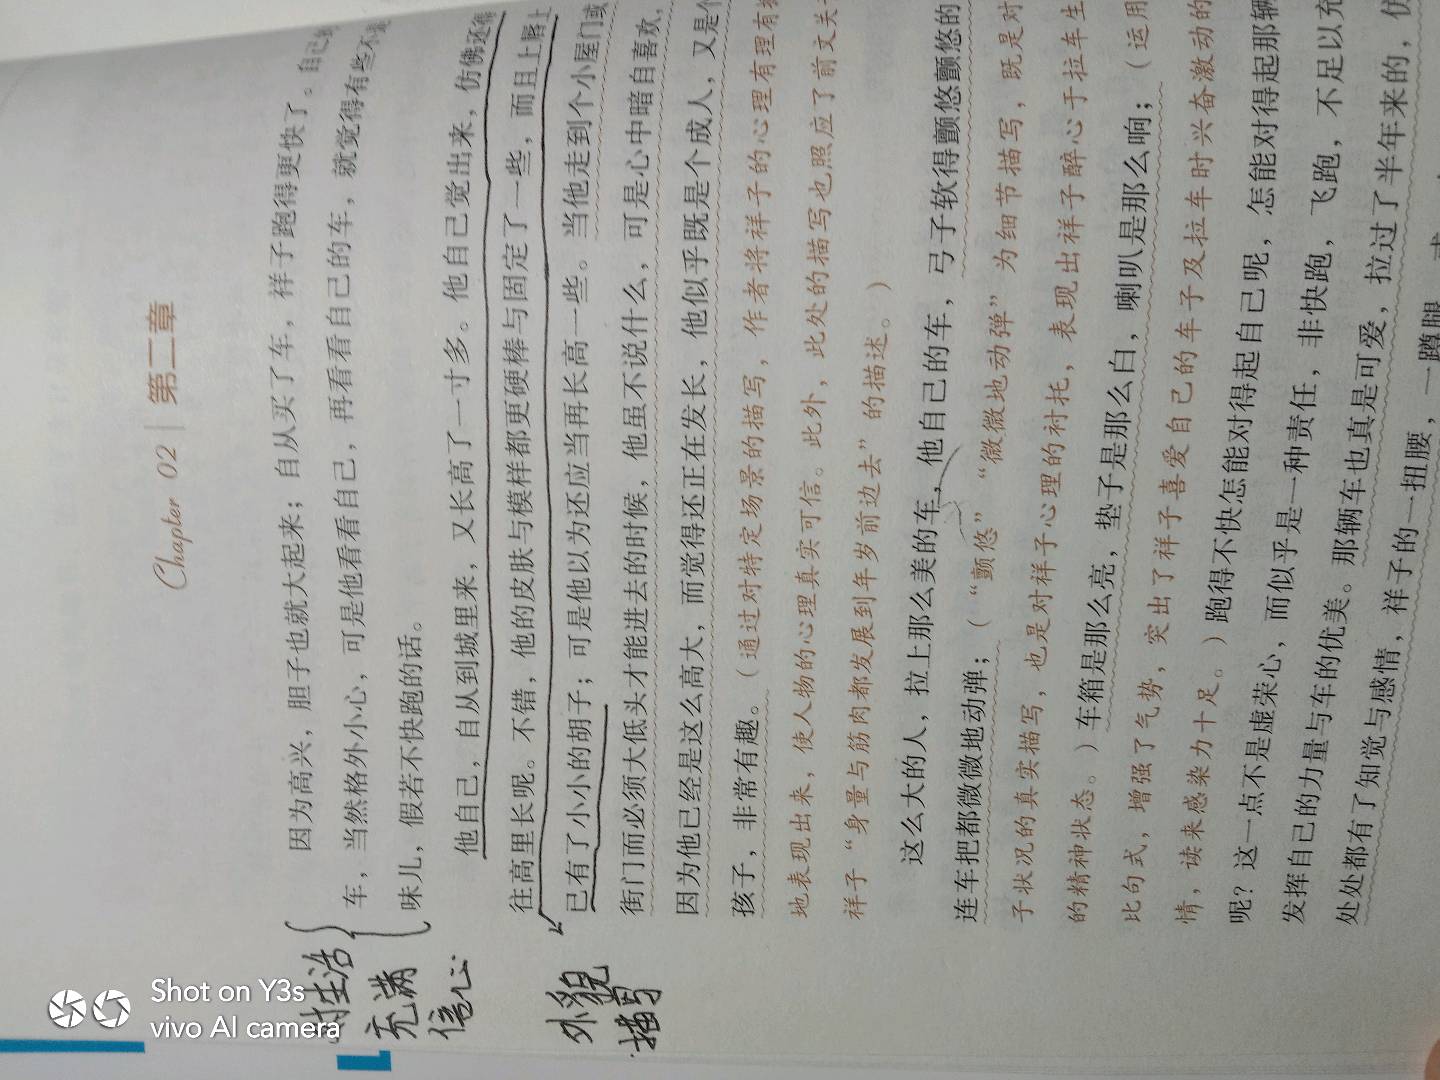 Chapter 02 | 第二章
因为高兴，胆子也就大起来；自从买了车，祥子跑得更快了。自己的
车，当然格外小心，可是他看看自己，再看看自己的车，就觉得有些不是
味儿，假若不快跑的话。
他自己，自从到城里来，又长高了一寸多。他自己觉出来，仿佛还得
往高里长呢。不错，他的皮肤与模样都更硬棒与固定了一些，而且上唇上
已有了小小的胡子；可是他以为还应当再长高一些。当他走到个小屋门或
街门而必须大低头才能进去的时候，他虽不说什么，可是心中暗自喜欢，
因为他已经是这么高大，而觉得还正在发长，他似乎既是个成人，又是个
孩子，非常有趣。（通过对特定场景的描写，作者将祥子的心理有理有据
地表现出来，使人物的心理真实可信。此外，此处的描写也照应了前文关于
祥子“身量与筋肉都发展到年岁前边去”的描述。）
这么大的人，拉上那么美的车，他自己的车，弓子软得颤悠颤悠的，
连车把都微微地动弹；（“颤悠”“微微地动弹”为细节描写，既是对
子状况的真实描写，也是对祥子心理的衬托，表现出祥子醉心于拉车生
的精神状态。）车箱是那么亮，垫子是那么白，喇叭是那么响；（运用
比句式，增强了气势，突出了祥子喜爱自己的车子及拉车时兴奋激动的
情，读来感染力十足。）跑得不快怎能对得起自己呢，怎能对得起那辆
呢？这一点不是虚荣心，而似乎是一种责任，非快跑，飞跑，不足以充
发挥自己的力量与车的优美。那辆车也真是可爱，拉过了半年来的，仿
处处都有了知觉与感情，祥子的一扭腰，一蹲腿
对生活
充满
信心
外貌
描写
Shot on Y3s
vivo AI camera